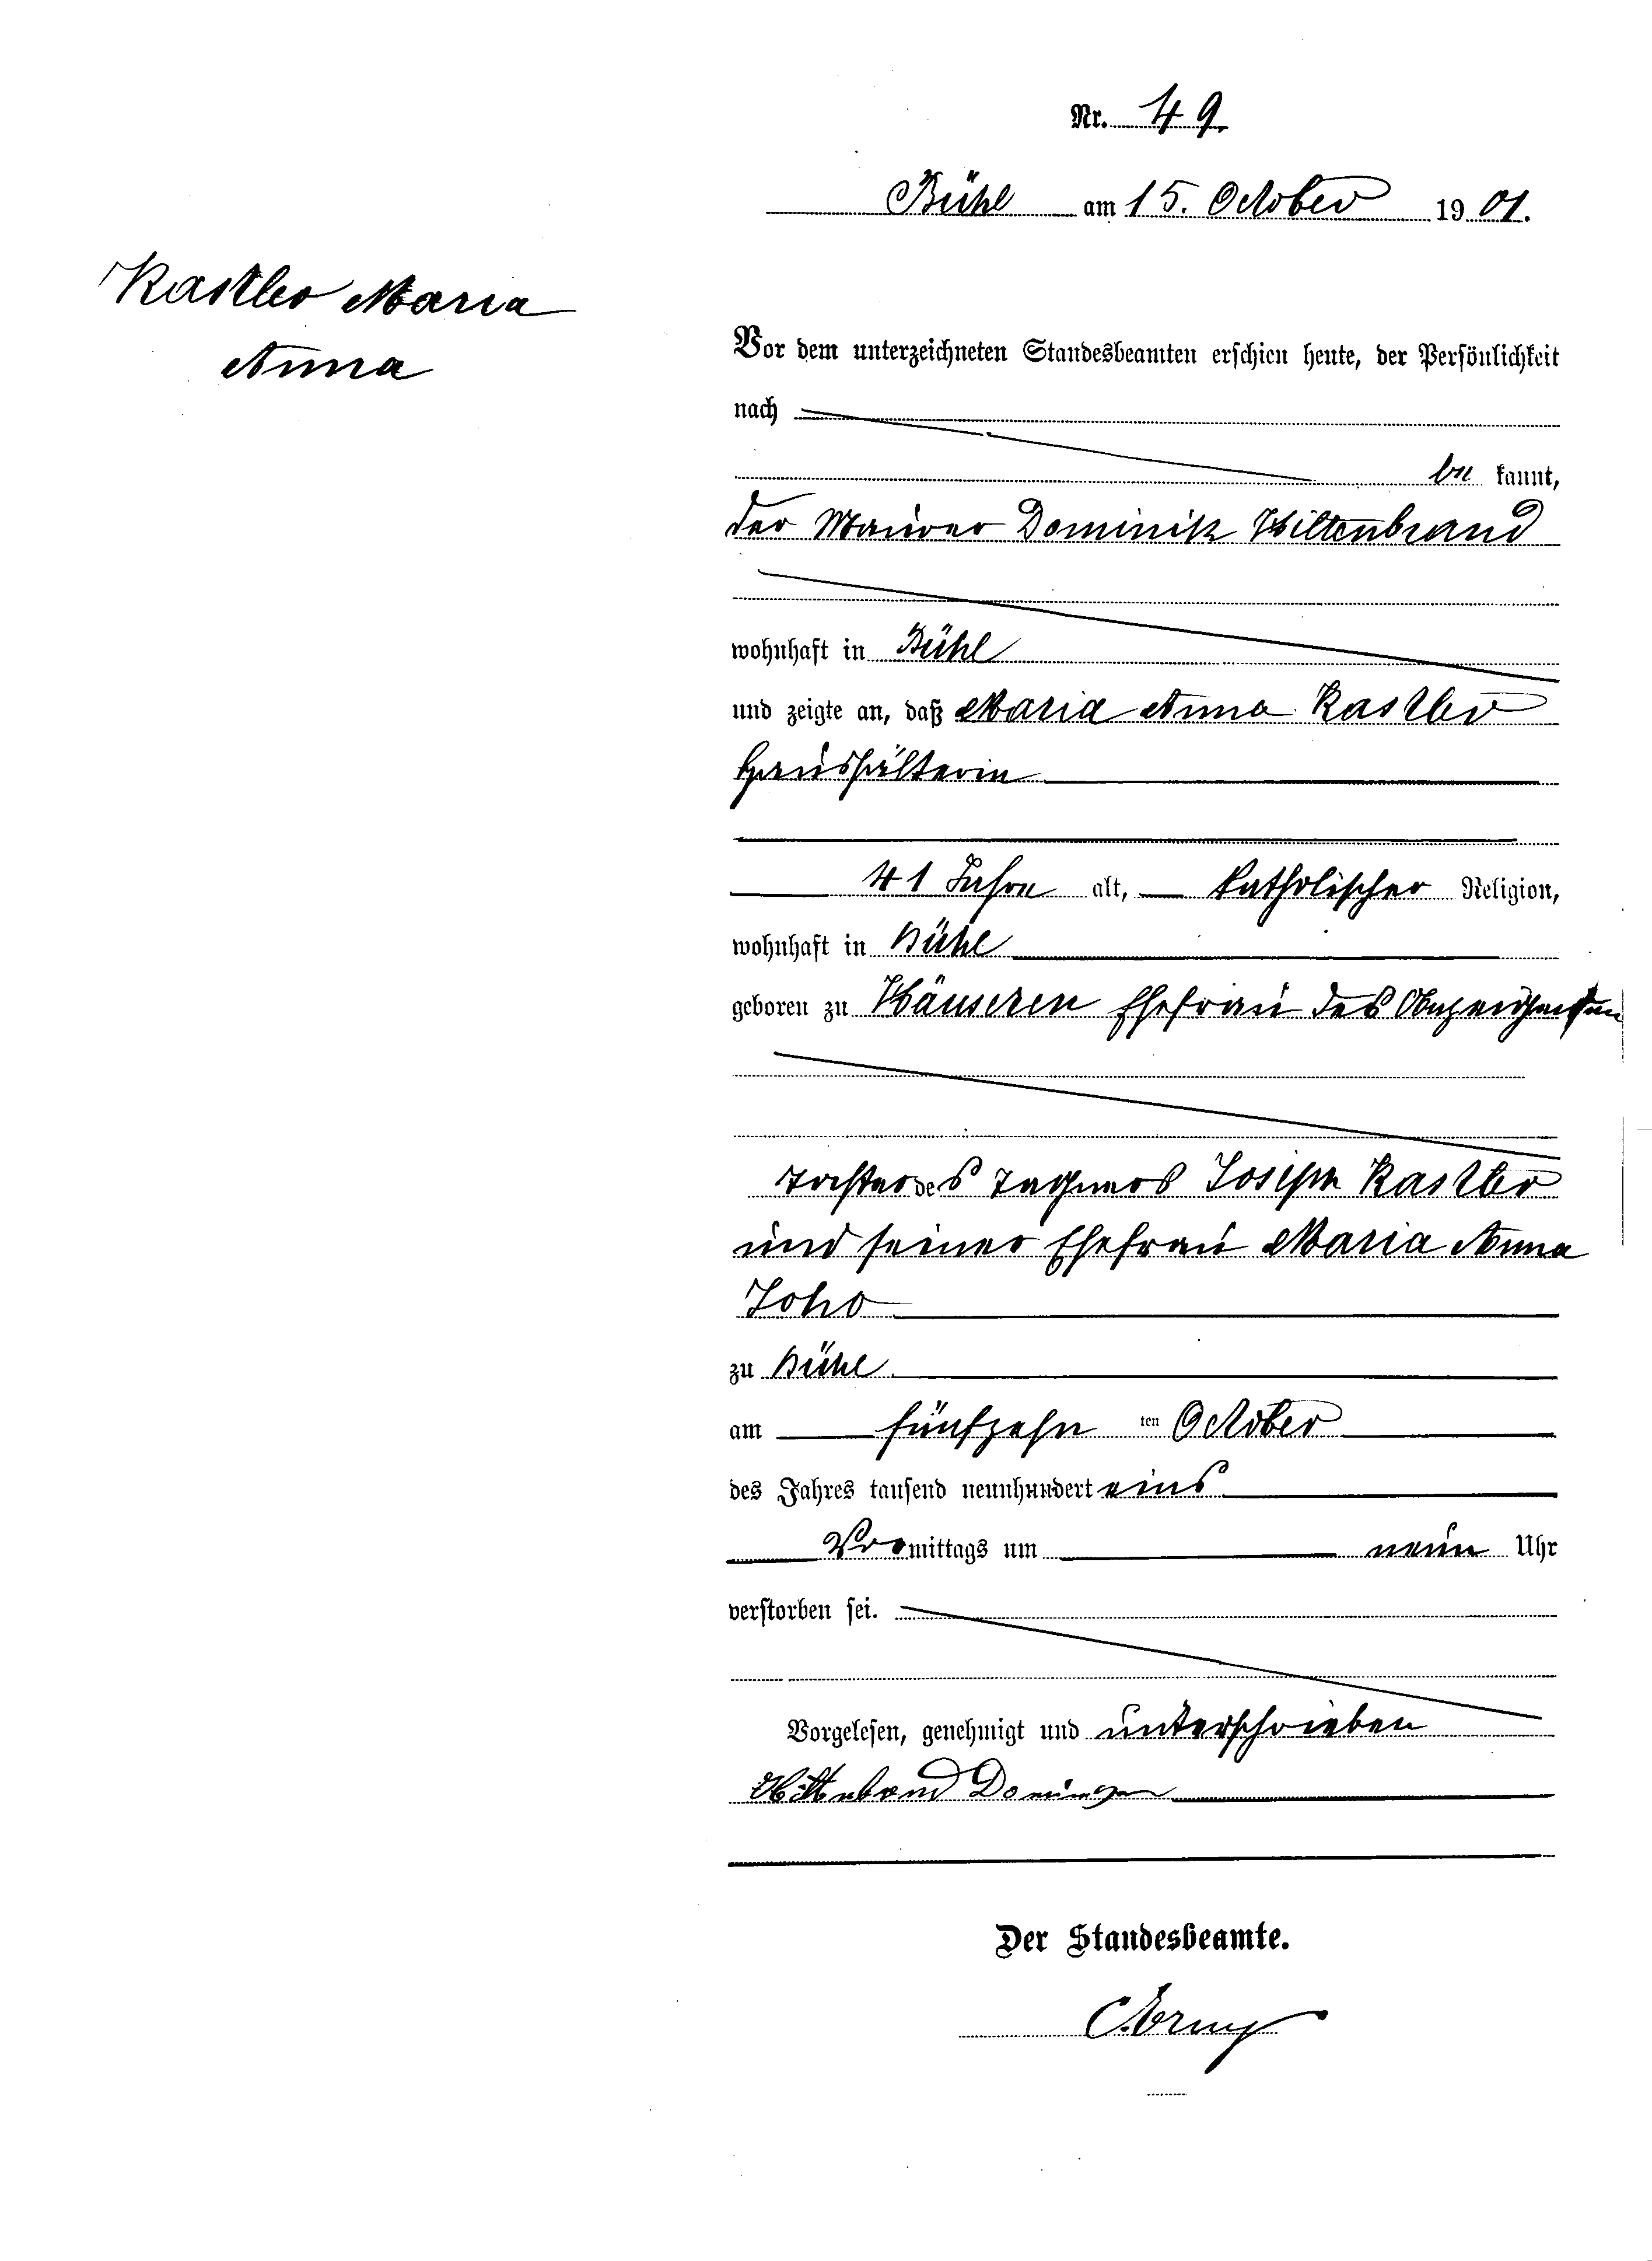 Nr. 49
Bühl am 15. October 1901.
Kastler Maria
Anna
Vor dem unterzeichneten Standesbeamten erschien heute, der Persönlichkeit
nach
be kannt,
der Maurer Dominik Hiltenbrand
wohnhaft in Bühl
und zeigte an, daß Maria Anna Kastler
Haushälterin
41 Jahre alt, katholischer Religion,
wohnhaft in Bühl
geboren zu Häuseren Ehefrau des Anzeigenden
Tochter des Tagners Joseph Kastler
und seiner Ehefrau Maria Anna
Joho
zu Bühl
am fünfzehn ten October
des Jahres tausend neunhundert eins
Vormittags um neun Uhr
verstorben sei.
Vorgelesen, genehmigt und unterschrieben
Hiltenbrand
Der Standesbeamte.